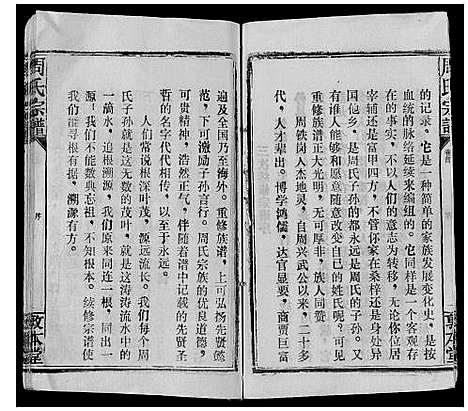 周氏宗譜
的记录。它是一种简单的家族发展变化史，是按
血统的脉络延续来编组的。它同样是一个客观存
在的事实，不以人们的意志为转移，无论你位居
宰辅还是富甲四方，不管你家在桑梓还是身处异
国他乡，是周氏子孙的都永远是周氏的子孙。又
有谁人能够和愿意随意改变自己的姓氏呢？可见
重修族谱正大光明，无可厚非，族人同赞。
周铁岗人杰地灵，自周兴武公以来，二十多
代，人才辈出。博学鸿儒，达官显要，商贾巨富
遍及全国乃至海外。重修族谱，上可弘扬先贤懿
范，下可激励子孙言行。周氏宗族的优良道德，
可贵精神，浩然正气，伴随着谱中记载的先贤圣
哲的名字代代相传，以至于永远。
人们常说根深叶茂，源远流长。我们每个周
氏子孙就是这一无数的茂叶，就是这涛涛流水中的
一滴水，追根溯源，原来同连一根，同出一
源！我们不能数典忘祖，不知根本。续修宗谱使
我们能寻根有据，溯源有方。
周氏宗譜
序
敦本堂